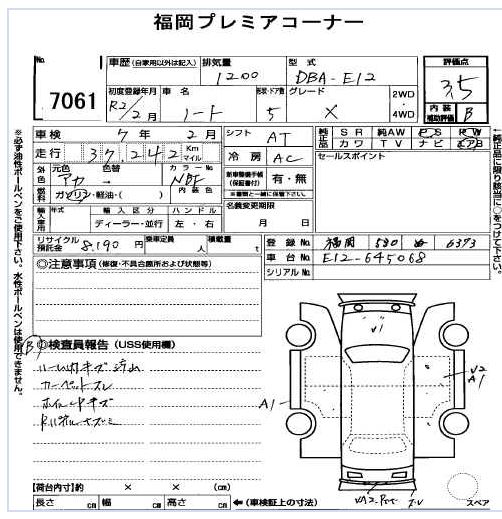 福岡プレミアコーナー
No.
7061
車歴 (自家用以外は記入)
排気量
1200
型式
DBA-E12
評価点
3.5
初度登録年月
R2/2月
車名
ノート
形状・ドア数
5
グレード
X
2WD
4WD
内装
補助評価
B
車検
7年2月
シフト
AT
純正品
SR 純AW PS PW
カワ TV ナビ エアB
走行
37,242
Km
マイル
冷房
AC
セールスポイント
外色
元色
アカ
色替
カラーNo
NBF
燃料
ガソリン・軽油・( )
内装色
新車整備手帳
(保証書付)
有・無
※書類と一緒に保管下さい。
輸入車用
年式
輸入区分
ディーラー・並行
ハンドル
左・右
名義変更期限
月 日
リサイクル
預託金
8,190円
乗車定員
人
積載量
t
登録No.
福岡 580 6373
車台No.
E12-645068
シリアルNo.
◎注意事項 (修復・不具合箇所および状態等)
◎検査員報告 (USS使用欄)
カーペットスレ
ホイルキズ
【荷台内寸】約 × × (cm)
長さ cm 幅 cm 高さ cm ←(車検証上の寸法)
V1
A1
V2
A1
スペア
※必ず油性ボールペンをご使用下さい。水性ボールペンは使用できません。
←純正品に限り該当に○をつけて下さい。